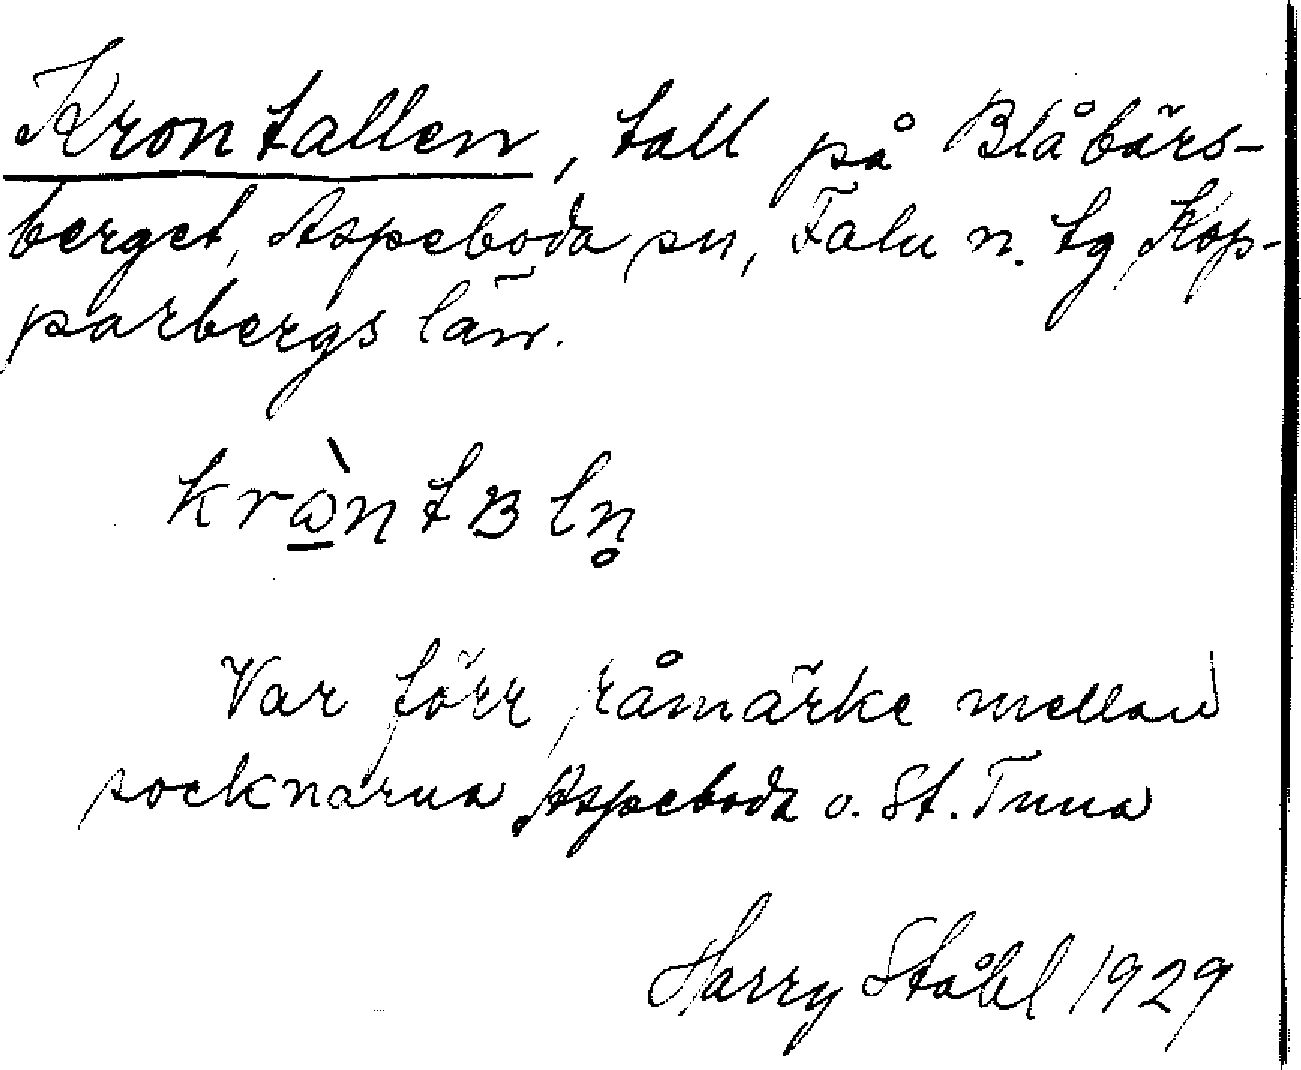 Krontallen, tall på Blåbärs-
berget, Aspeboda sn, Falu n. tg Kop-
parbergs län.
Var förr råmärke mellan
socknarna Aspeboda o. St. Tuna
Harry Ståhl 1929